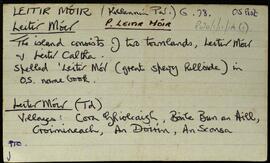 LEITIR MÓIR (Kilcummin Par.) G. 78. OS Plot
Leitir Móir P. LEITIR MÓIR
The island consists of two townlands, Leitir Móir
& Leitir Caltha.
Spelled 'Leitir Mór (great spewy hillside)' in
O.S. name Book.
Leitir Móir (Td)
Villages: Cora Ghiolraigh, Baile Bun an Aill,
Croimineach, An Doirín, An Sconsa
PTO.